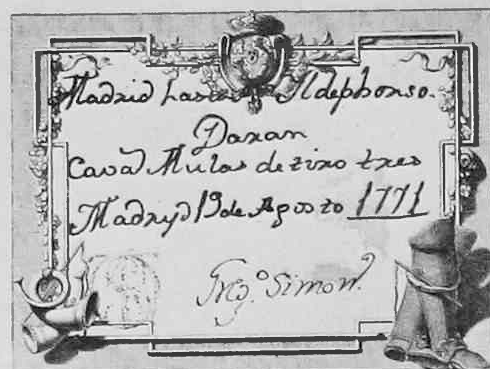 Madrid hasta Sn Ildephonso.
Daran
Cavas Mulas de tiro tres
Madryd 19 de Agosto 1771
Greg.o Simon.